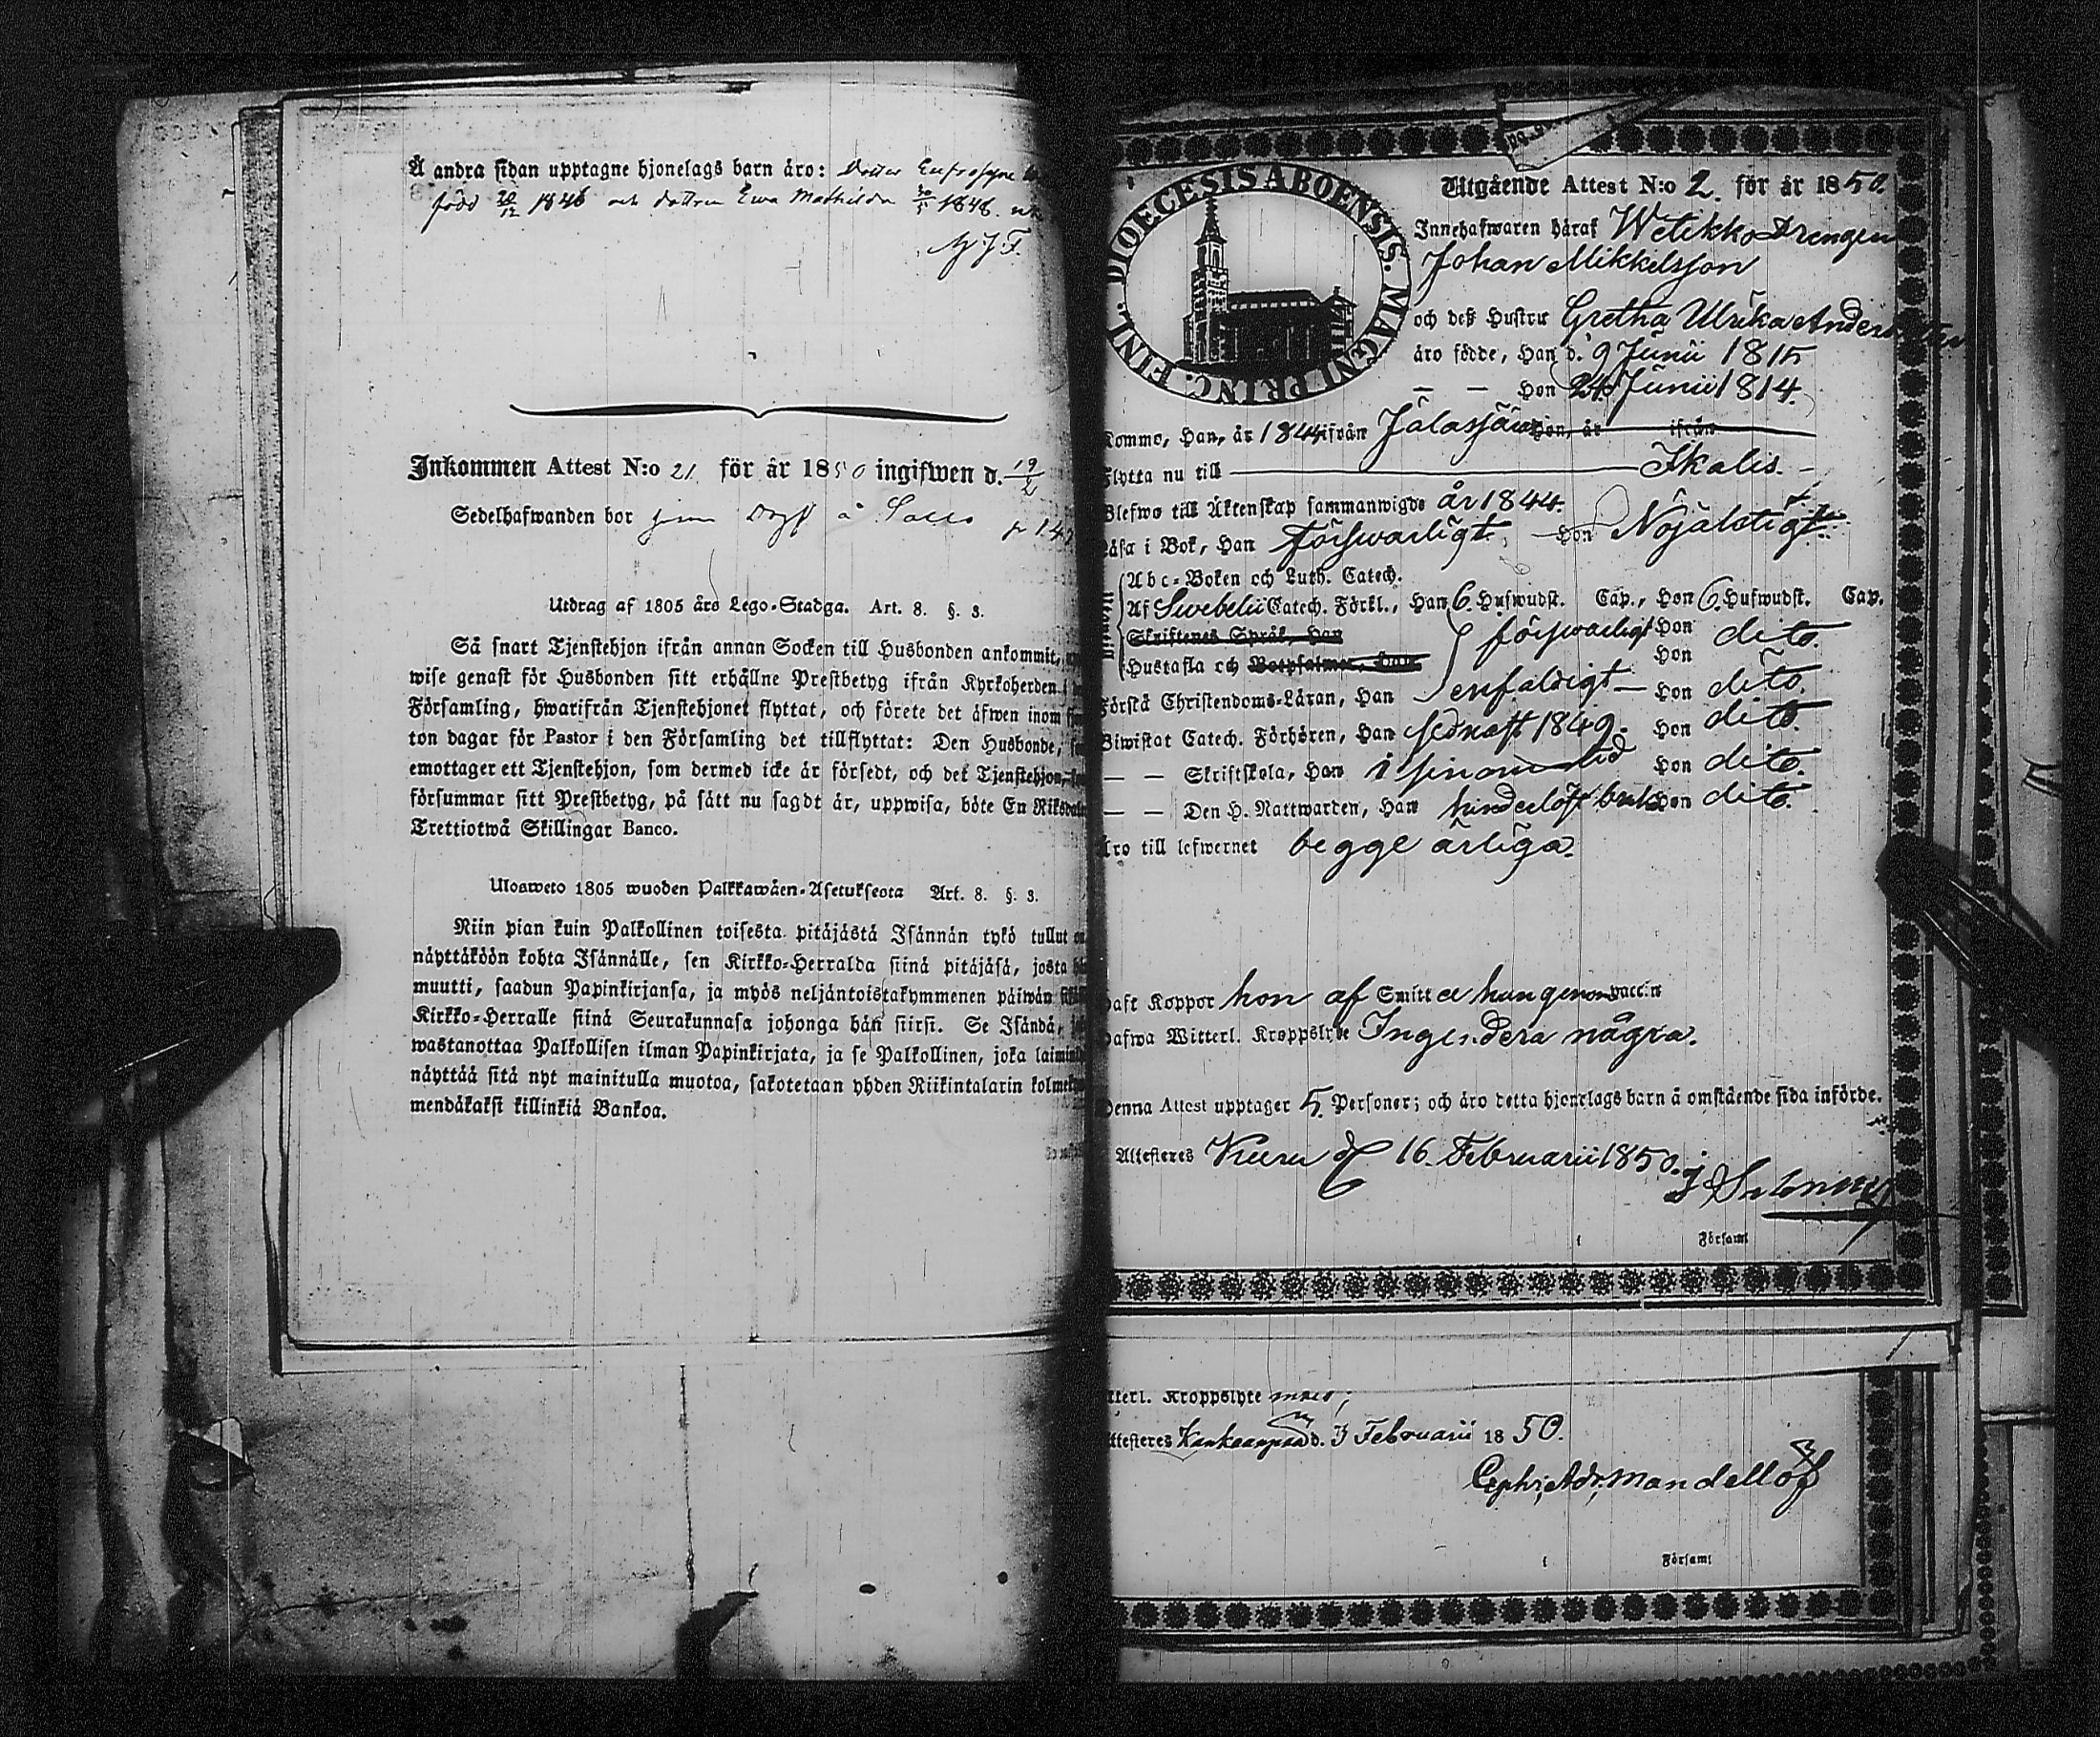 Å andra sidan upptagne hjonelags barn äro: Dotter Eufrosyne
född 20/12 1846 och dottren Ewa Mathilda 30/5 1848.
Inkommen Attest N:o 21 för år 1850 ingifwen d. 19/2
Sedelhafwanden bor
Utdrag af 1805 års Lego-Stadga. Art. 8. §. 3.
Så snart Tjenstehjon ifrån annan Socken till Husbonden ankommit,
wise genast för Husbonden sitt erhållne Prestbetyg ifrån Kyrkoherden i
Församling, hwarifrån Tjenstehjonet flyttat, och förete det äfwen inom
ton dagar för Pastor i den Församling det tillflyttat: Den Husbonde,
emottager ett Tjenstehjon, som dermed icke är försedt, och det Tjenstehjon,
försummar sitt Prestbetyg, på sätt nu sagdt är, uppwisa, böte En Riksdaler
Trettiotwå Skillingar Banco.
Ulosweto 1805 wuoden Palkkawäen-Asetuksesta Art. 8. §. 3.
Niin pian kuin Palkollinen toisesta pitäjästä Isännän tykö tullut
näyttäköön kohta Isännälle, sen Kirkko-Herralda siinä pitäjäsä, josta
muutti, saadun Papinkirjansa, ja myös neljäntoistakymmenen päiwän
Kirkko-Herralle siinä Seurakunnasa johonga hän siirsi. Se Isändä,
wastanottaa Palkollisen ilman Papinkirjata, ja se Palkollinen, joka
näyttää sitä nyt mainitulla muotoa, sakotetaan yhden Riikintalarin
mendäkaksi killinkiä Bankoa.
DIOECESIS ABOENSIS. MAGNI PRINC. FINL.
Utgående Attest N:o 2. för år 1850.
Innehafwaren häraf Wetikko Drengen
Johan Mikkelsson
och deß Hustru Gretha Ulrika Anders
äro födde, Han d. 9 Junii 1815
— — Hon 24 Junii 1814.
Kommo, Han, år 1844 ifrån Jalasjärvi Hon, år ifrån
Flytta nu till Ikalis.
Blefwo till Äktenskap sammanwigde år 1844.
Läsa i Bok, Han försvarligt, Hon Nöjaktigt
Abc-Boken och Luth. Catech.
Af Swebelii Catech. Förkl., Han 6. Hufwudst. Cap., Hon 6. Hufwudst. Cap.
Skriftenes Språk, Han försvarligt Hon dito.
Hustafla och Botpsalmer, Han Hon
Förstå Christendoms-Läran, Han enfaldigt — Hon dito.
Biwistat Catech. Förhören, Han sednast 1849. Hon dito.
— — Skriftskola, Han i sinom tid Hon dito.
— — Den H. Nattwarden, Han hinderlöst bruk Hon dito.
Äro till lefwernet begge ärliga.
Haft Koppor hon af Smitt & han genom vaccin
Hafwa Witterl. Kroppslyte Ingendera några.
Denna Attest upptager 5. Personer; och äro detta hjonelags barn å omstående sida införde.
Attesteres Kuru d. 16. Februarii 1850.
Församl
Witterl. Kroppslyte
Attesteres Kankaanpää d. 3 Februarii 1850.
Mandellöf
Församl